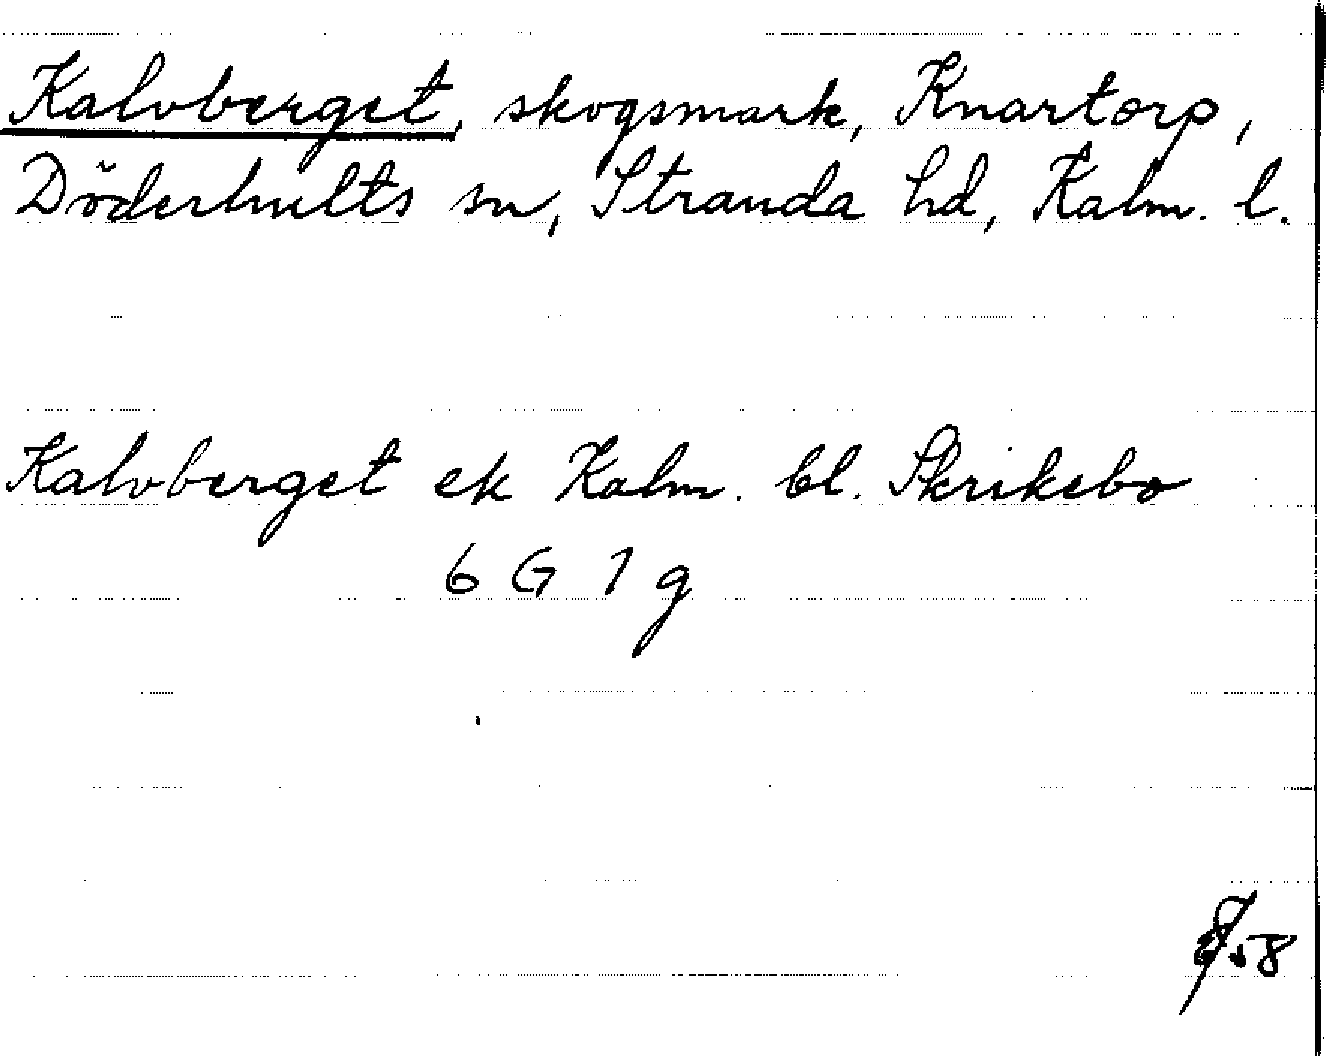 Kalvberget, skogsmark, Knartorp,
Döderhults sn, Stranda hd, Kalm. l.
Kalvberget ek Kalm. bl. Skrikebo
6 G 1 g
58